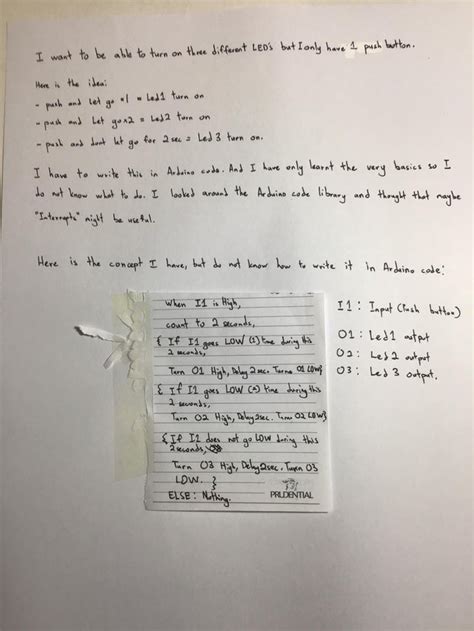 I want to be able to turn on three different LED's but I only have 1 push button.
Here is the idea:
- push and let go x1 = Led1 turn on
- push and let go x2 = Led2 turn on
- push and dont let go for 2 sec = Led3 turn on.
I have to write this in Arduino code. And I have only learnt the very basics so I
do not know what to do. I looked around the Arduino code library and thought that maybe
"Interrupts" might be useful.
Here is the concept I have, but do not know how to write it in Arduino code:
When I1 is High,
count to 2 seconds,
{ If I1 goes LOW (1) time during this
2 seconds,
Turn O1 High, Delay 2sec. Turn O1 LOW}
{ If I1 goes LOW (2) time during this
2 seconds,
Turn O2 High, Delay 2sec. Turn O2 LOW}
{ If I1 does not go LOW during this
2 seconds,
Turn O3 High, Delay 2sec, Turn O3
LOW. }
ELSE: Nothing.
PRUDENTIAL
I1: Input (Push button)
O1: Led1 output
O2: Led2 output
O3: Led 3 output.